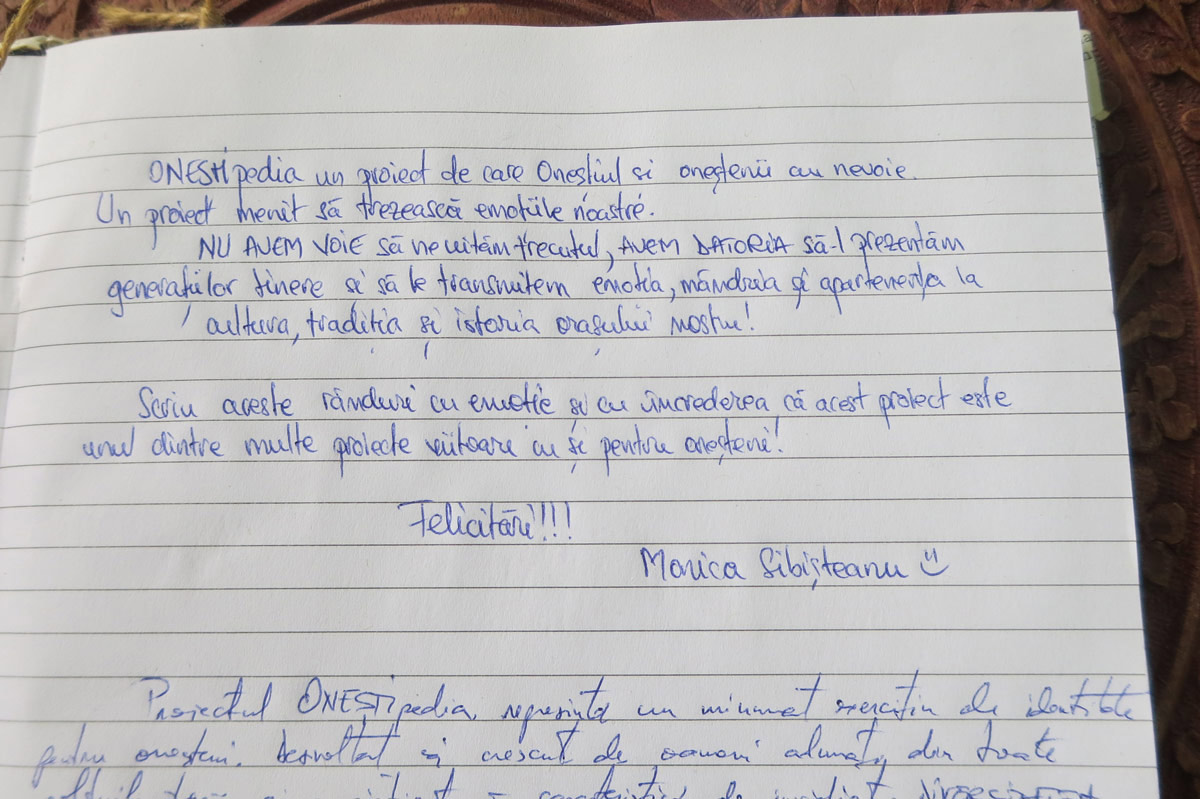 ONEȘTIpedia un proiect de care Oneștiul si oneștenii au nevoie.
Un proiect menit să trezească emoțiile noastre.
NU AVEM VOIE să ne uităm trecutul, AVEM DATORIA să-l prezentăm
generațiilor tinere si să le transmitem emoția, mândria și apartenența la
cultura, tradiția și istoria orașului nostru!
Scriu aceste rânduri cu emoție și cu încrederea că acest proiect este
unul dintre multe proiecte viitoare cu și pentru oneșteni!
Felicitări!!!
Monica Sibișteanu
Proiectul ONEȘTIpedia, reprezintă un minunat exercițiu de identitate
pentru oneșteni. Dezvoltat și crescut de oameni adunați din toate